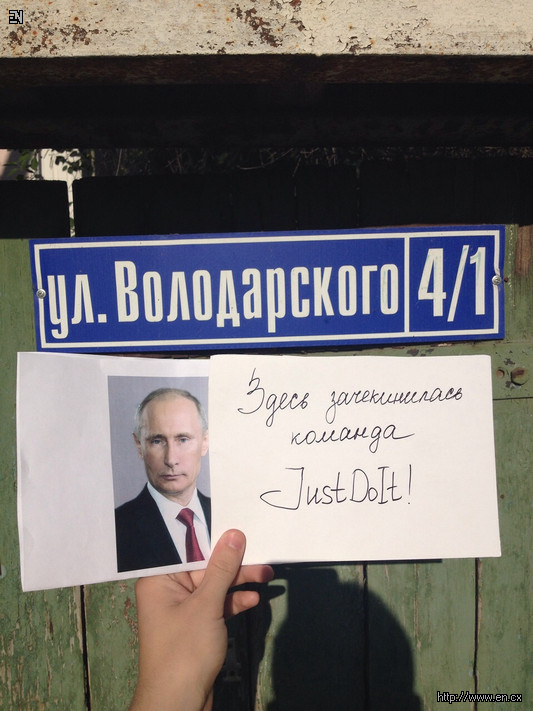 EN
ул. Володарского 4/1
Здесь зачекинилась
команда
JustDoIt!
http://www.en.cx